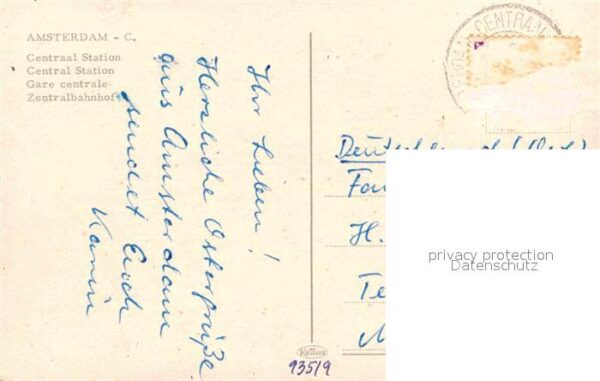 AMSTERDAM - C.
Centraal Station
Central Station
Gare centrale
Zentralbahnhof
Ihr Lieben!
Herzliche Ostergrüße
aus Amsterdam
sendet Euch
Karin
CENTRAAL
Deutschland
H.
privacy protection
Datenschutz
KRÜGER
935/9